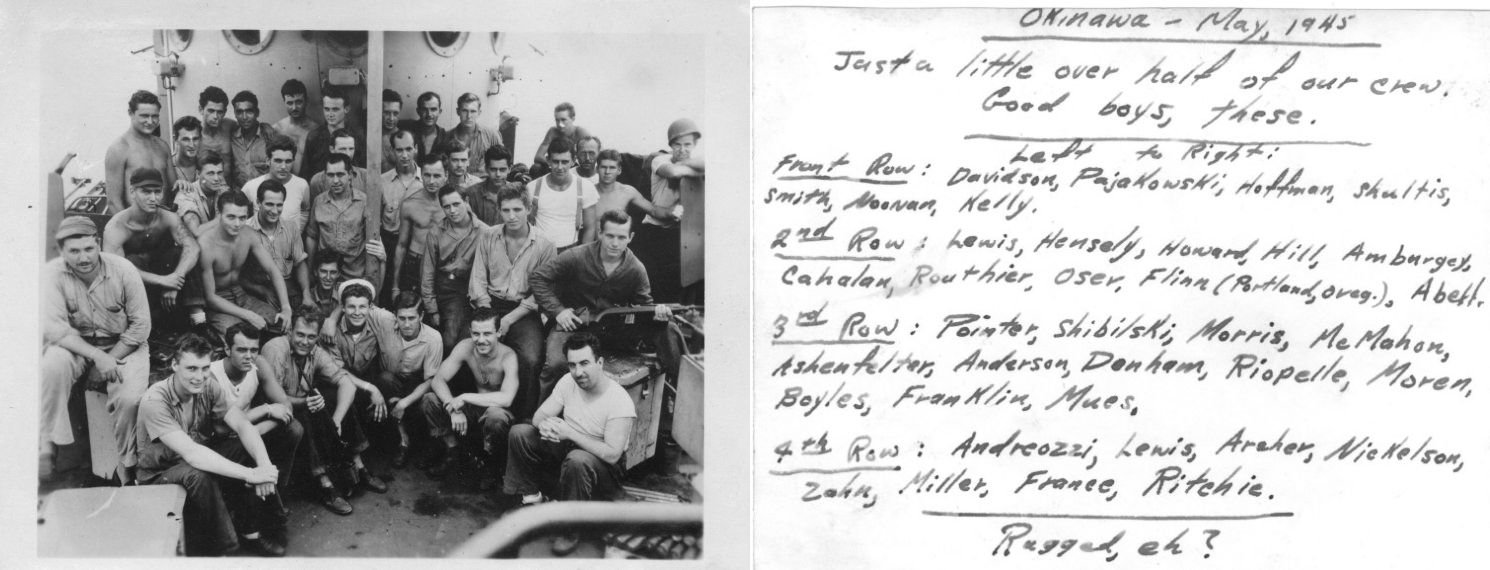 Okinawa - May, 1945
Just a little over half of our crew.
Good boys, these.
Left to Right:
Front Row: Davidson, Pajakowski, Hoffman, Shultis,
Smith, Noonan, Kelly.
2nd Row: Lewis, Hensely, Howard, Hill, Amburgey,
Cahalan, Routhier, Oser, Flinn (Portland, Oreg.), Abell.
3rd Row: Pointer, Shibilski, Morris, McMahon,
Ashenfelter, Anderson, Denham, Riopelle, Moren,
Boyles, Franklin, Mues,
4th Row: Andreozzi, Lewis, Archer, Nickelson,
Zahn, Miller, France, Ritchie.
Rugged, eh?